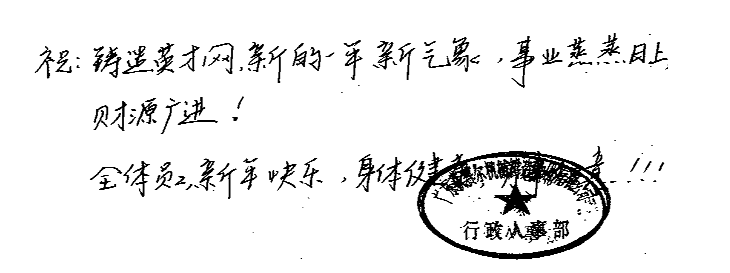 祝：铸造英才网，新的一年新气象，事业蒸蒸日上
财源广进！
全体员工，新年快乐，身体健康，万事如意！！！
行政人事部